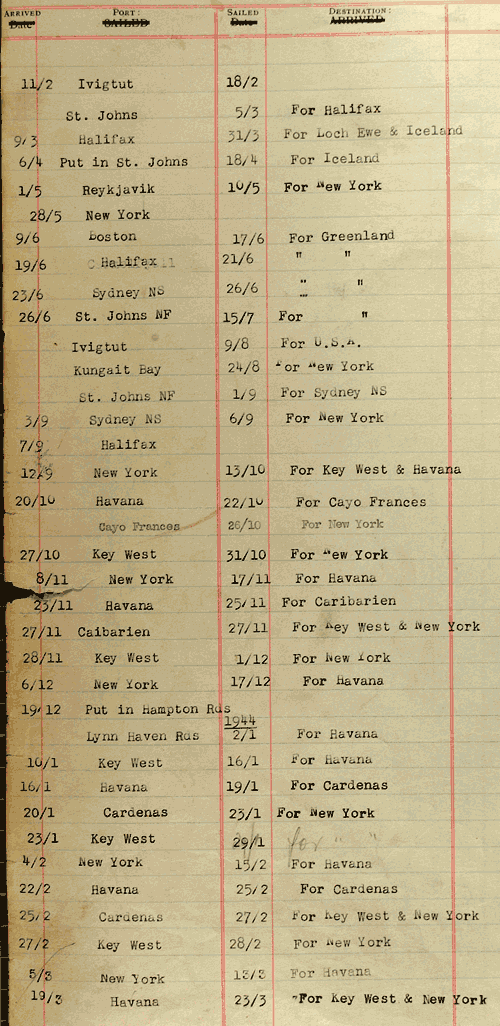 ARRIVED PORT: SAILED DESTINATION:
Date SAILED Date ARRIVED
11/2 Ivigtut 18/2
St. Johns 5/3 For Halifax
9/3 Halifax 31/3 For Loch Ewe & Iceland
6/4 Put in St. Johns 18/4 For Iceland
1/5 Reykjavik 10/5 For New York
28/5 New York
9/6 Boston 17/6 For Greenland
19/6 Halifax 21/6 " "
23/6 Sydney NS 26/6 " "
26/6 St. Johns NF 15/7 For "
Ivigtut 9/8 For U.S.A.
Kungait Bay 24/8 For New York
St. Johns NF 1/9 For Sydney NS
3/9 Sydney NS 6/9 For New York
7/9 Halifax
12/9 New York 13/10 For Key West & Havana
20/10 Havana 22/10 For Cayo Frances
Cayo Frances 26/10 For New York
27/10 Key West 31/10 For New York
8/11 New York 17/11 For Havana
23/11 Havana 25/11 For Caribarien
27/11 Caibarien 27/11 For Key West & New York
28/11 Key West 1/12 For New York
6/12 New York 17/12 For Havana
19/12 Put in Hampton Rds
1944
Lynn Haven Rds 2/1 For Havana
10/1 Key West 16/1 For Havana
16/1 Havana 19/1 For Cardenas
20/1 Cardenas 23/1 For New York
23/1 Key West 29/1 for " "
4/2 New York 15/2 For Havana
22/2 Havana 25/2 For Cardenas
25/2 Cardenas 27/2 For Key West & New York
27/2 Key West 28/2 For New York
5/3 New York 13/3 For Havana
19/3 Havana 23/3 For Key West & New York